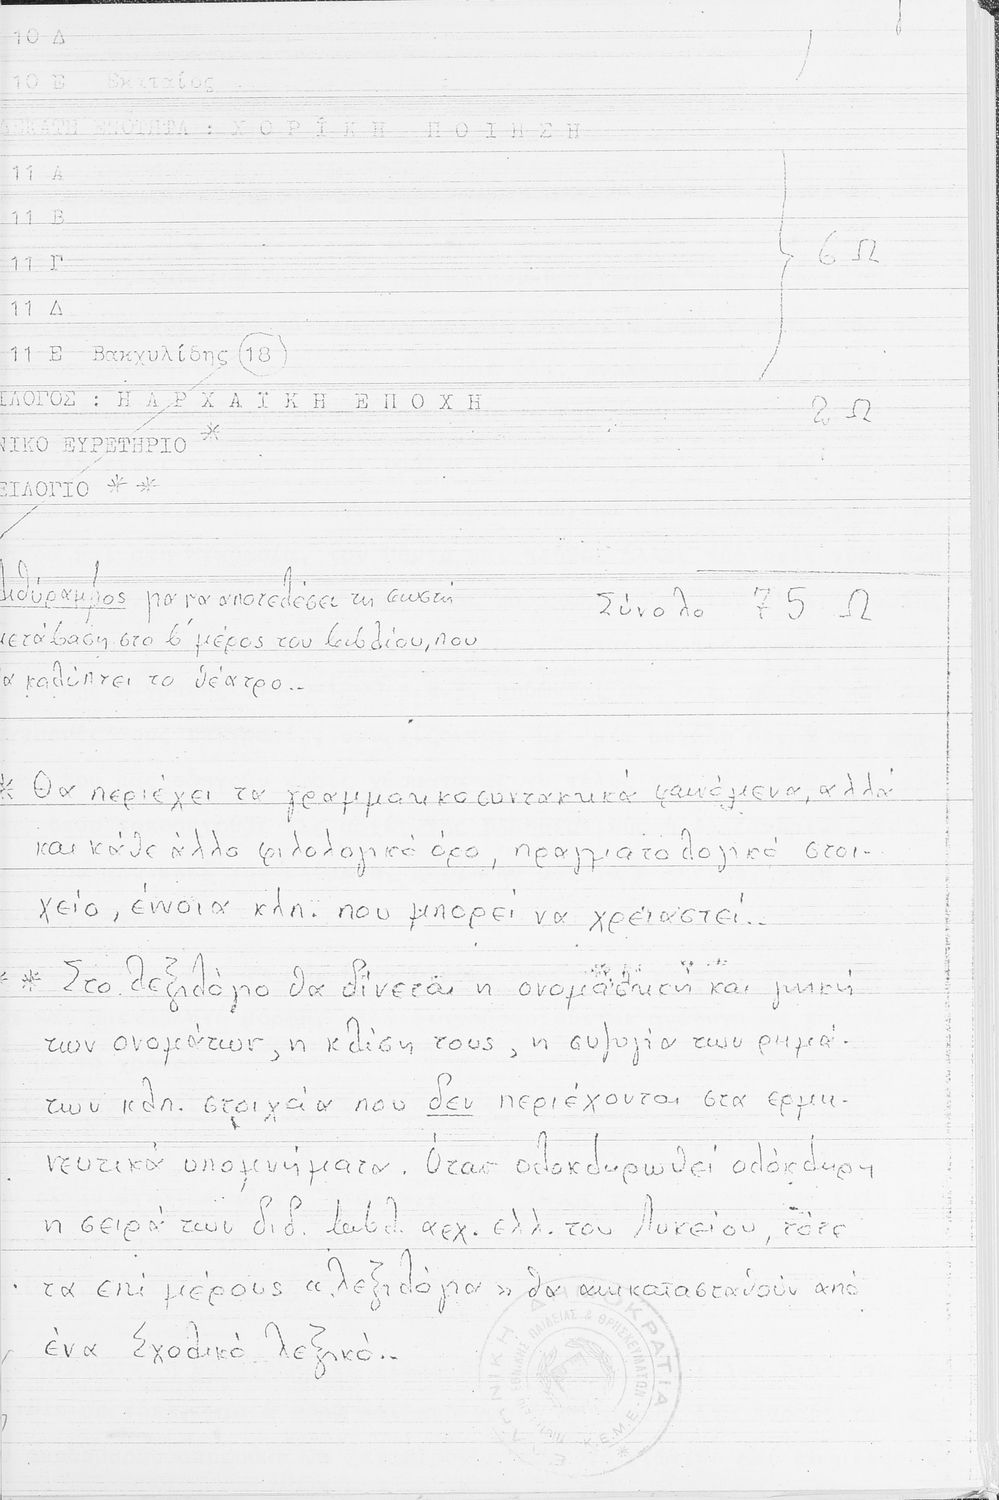 10 Δ
10 Ε Εκαταίος
ΕΝΟΤΗΤΑ : Χ Ο Ρ Ϊ Κ Η Π Ο Ι Η Σ Η
11 Α
11 Β
11 Γ
6 Ω
11 Δ
11 Ε Βακχυλίδης 18
ΙΛΟΓΟΣ : Η Α Ρ Χ Α Ϊ Κ Η Ε Π Ο Χ Η
2 Ω
ΝΙΚΟ ΕΥΡΕΤΗΡΙΟ *
ΞΙΛΟΓΙΟ * *
διθύραμβος για να αποτελέσει τη σωστή
Σύνολο 75 Ω
μετάβαση στο β' μέρος του βιβλίου, που
θα καλύπτει το θέατρο..
* Θα περιέχει τα γραμματικοσυντακτικά φαινόμενα, αλλά
και κάθε άλλο φιλολογικό όρο, πραγματολογικό στοι-
χείο, έννοια κλπ. που μπορεί να χρειαστεί..
* * Στο λεξιλόγιο θα δίνεται η ονομαστική και γενική
των ονομάτων, η κλίση τους, η συζυγία των ρημά-
των κλπ. στοιχεία που δεν περιέχονται στα ερμη-
νευτικά υπομνήματα. Όταν ολοκληρωθεί ολόκληρη
η σειρά των διδ. βιβλ. αρχ. ελλ. του Λυκείου, τότε
τα επί μέρους «λεξιλόγια» θα αντικατασταθούν από
ένα Σχολικό Λεξικό..
ΕΛΛΗΝΙΚΗ ΔΗΜΟΚΡΑΤΙΑ
ΕΘΝΙΚΗΣ ΠΑΙΔΕΙΑΣ & ΘΡΗΣΚΕΥΜΑΤΩΝ
Κ.Ε.Μ.Ε.